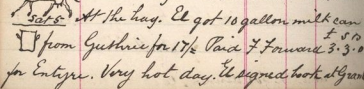 Sat 5 At the hay. El got 10 gallon milk can
from Guthrie for 17/2 Paid F Forward £ 3. 3. 0
for Entyre. Very hot day. El signed book at Gran